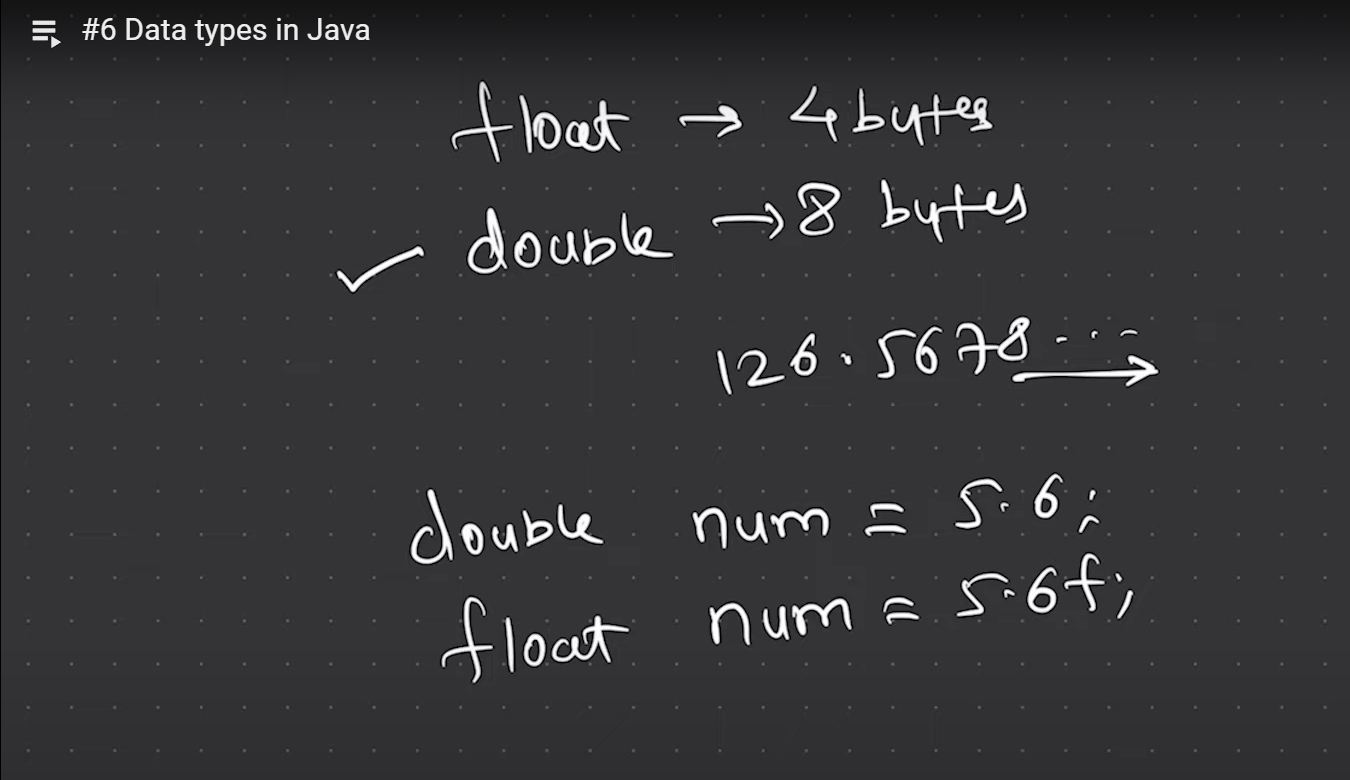 #6 Data types in Java
float → 4 bytes
✓ double → 8 bytes
126.5678...
double num = 5.6;
float num = 5.6f;